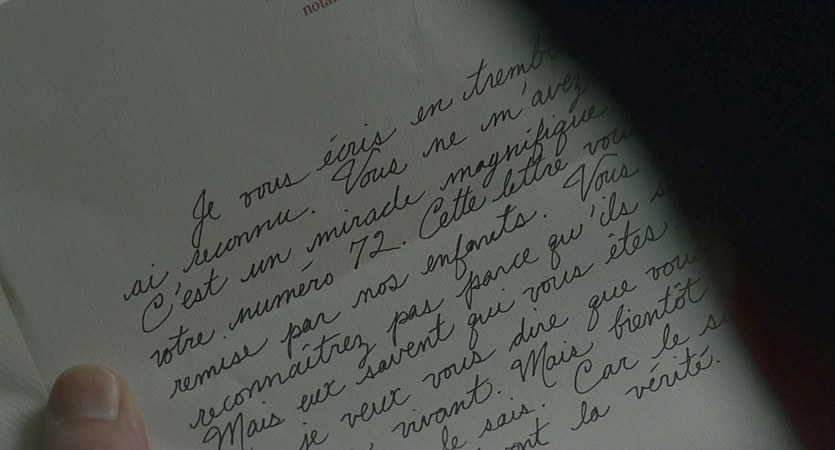 nota
Je vous écris en trembl
ai reconnu. Vous ne m'avez
C'est un miracle magnifique
votre numéro 72. Cette lettre vou
remise par nos enfants. Vous
reconnaîtrez pas parce qu'ils s
Mais eux savent qui vous êtes.
je veux vous dire que vou
vivant. Mais bientôt
le sais. Car le s
ont la vérité.